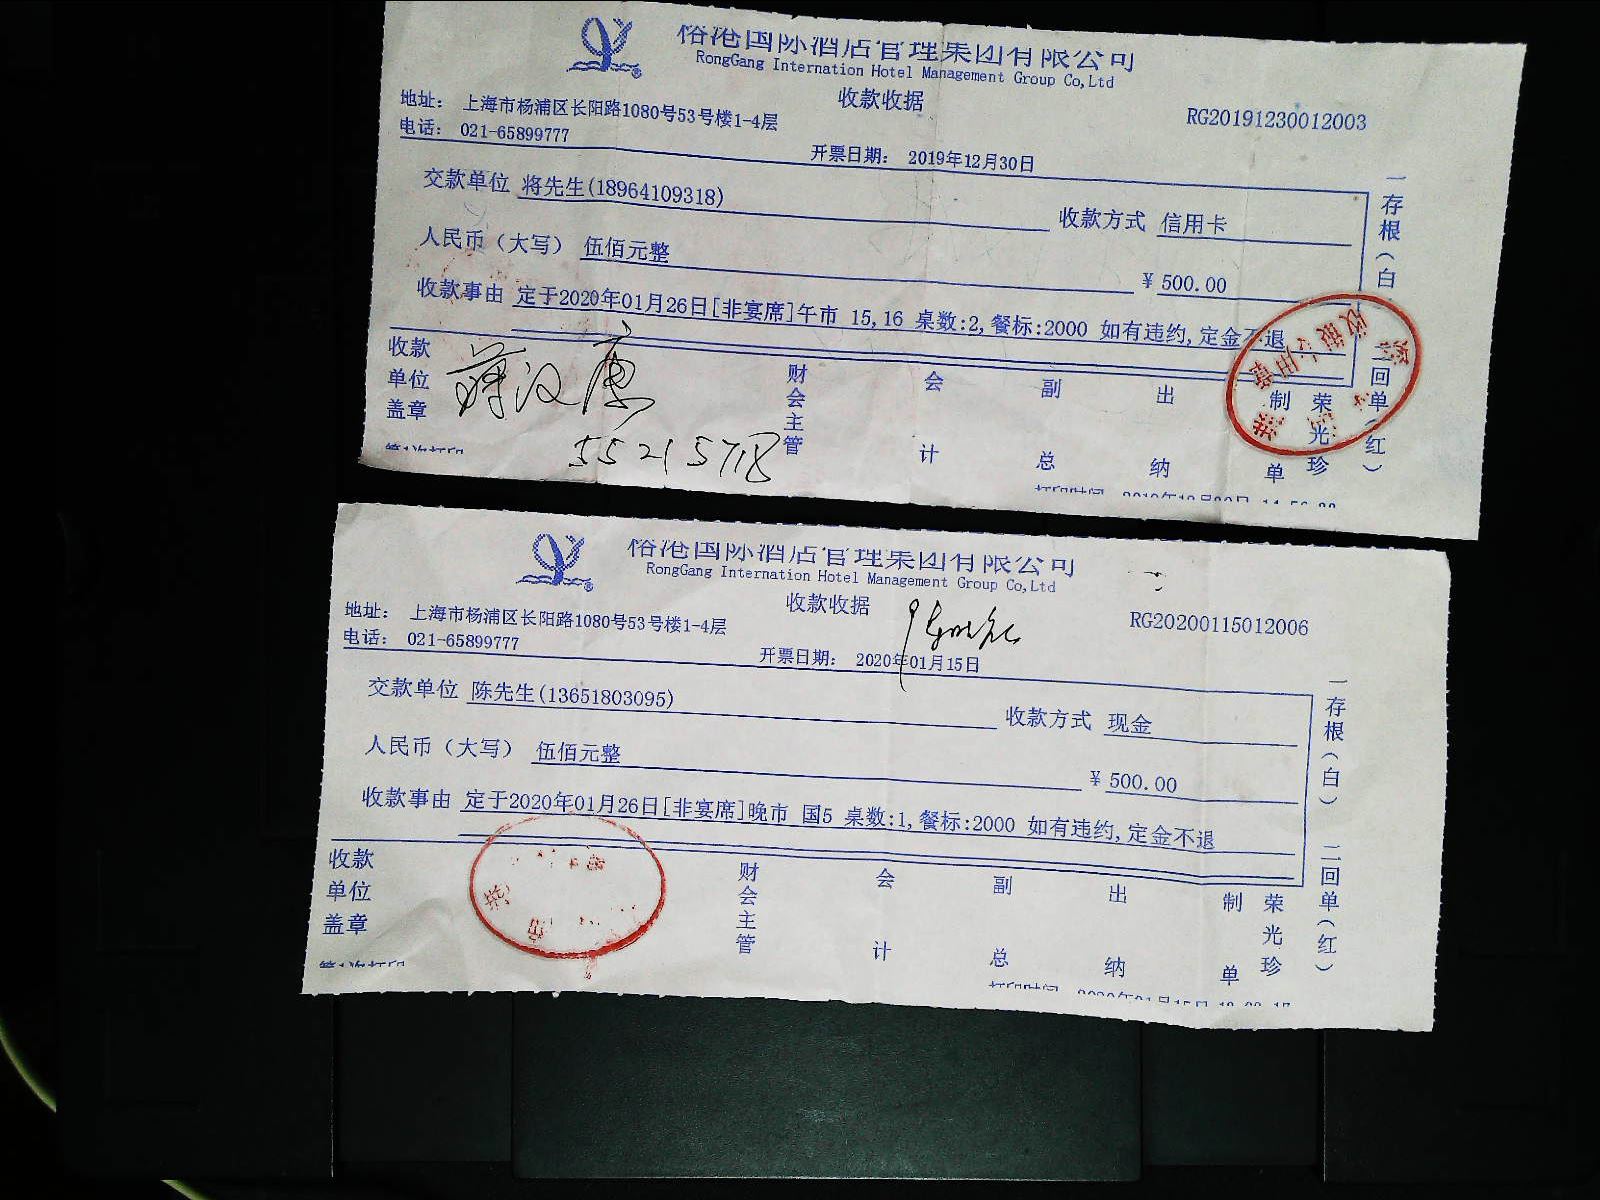 港国际酒店管理集团有限公司
RongGang Internation Hotel Management Group Co,Ltd
收款收据
RG20191230012003
地址： 上海市杨浦区长阳路1080号53号楼1-4层
电话： 021-65899777
开票日期： 2019年12月30日
交款单位 将先生(18964109318)
收款方式 信用卡
人民币（大写） 伍佰元整
¥ 500.00
收款事由 定于2020年01月26日[非宴席]午市 15,16 桌数:2,餐标:2000 如有违约,定金不退
一存根（白）
二回单（红）
收款单位盖章
蒋汉康
55215718
财会主管
会计
副总
出纳
制单
荣光珍
第1次打印
打印时间
港国际酒店管理集团有限公司
RongGang Internation Hotel Management Group Co,Ltd
收款收据
RG20200115012006
地址： 上海市杨浦区长阳路1080号53号楼1-4层
电话： 021-65899777
开票日期： 2020年01月15日
交款单位 陈先生(13651803095)
收款方式 现金
人民币（大写） 伍佰元整
¥ 500.00
收款事由 定于2020年01月26日[非宴席]晚市 国5 桌数:1,餐标:2000 如有违约,定金不退
一存根（白）
二回单（红）
收款单位盖章
财会主管
会计
副总
出纳
制单
荣光珍
第1次打印
打印时间